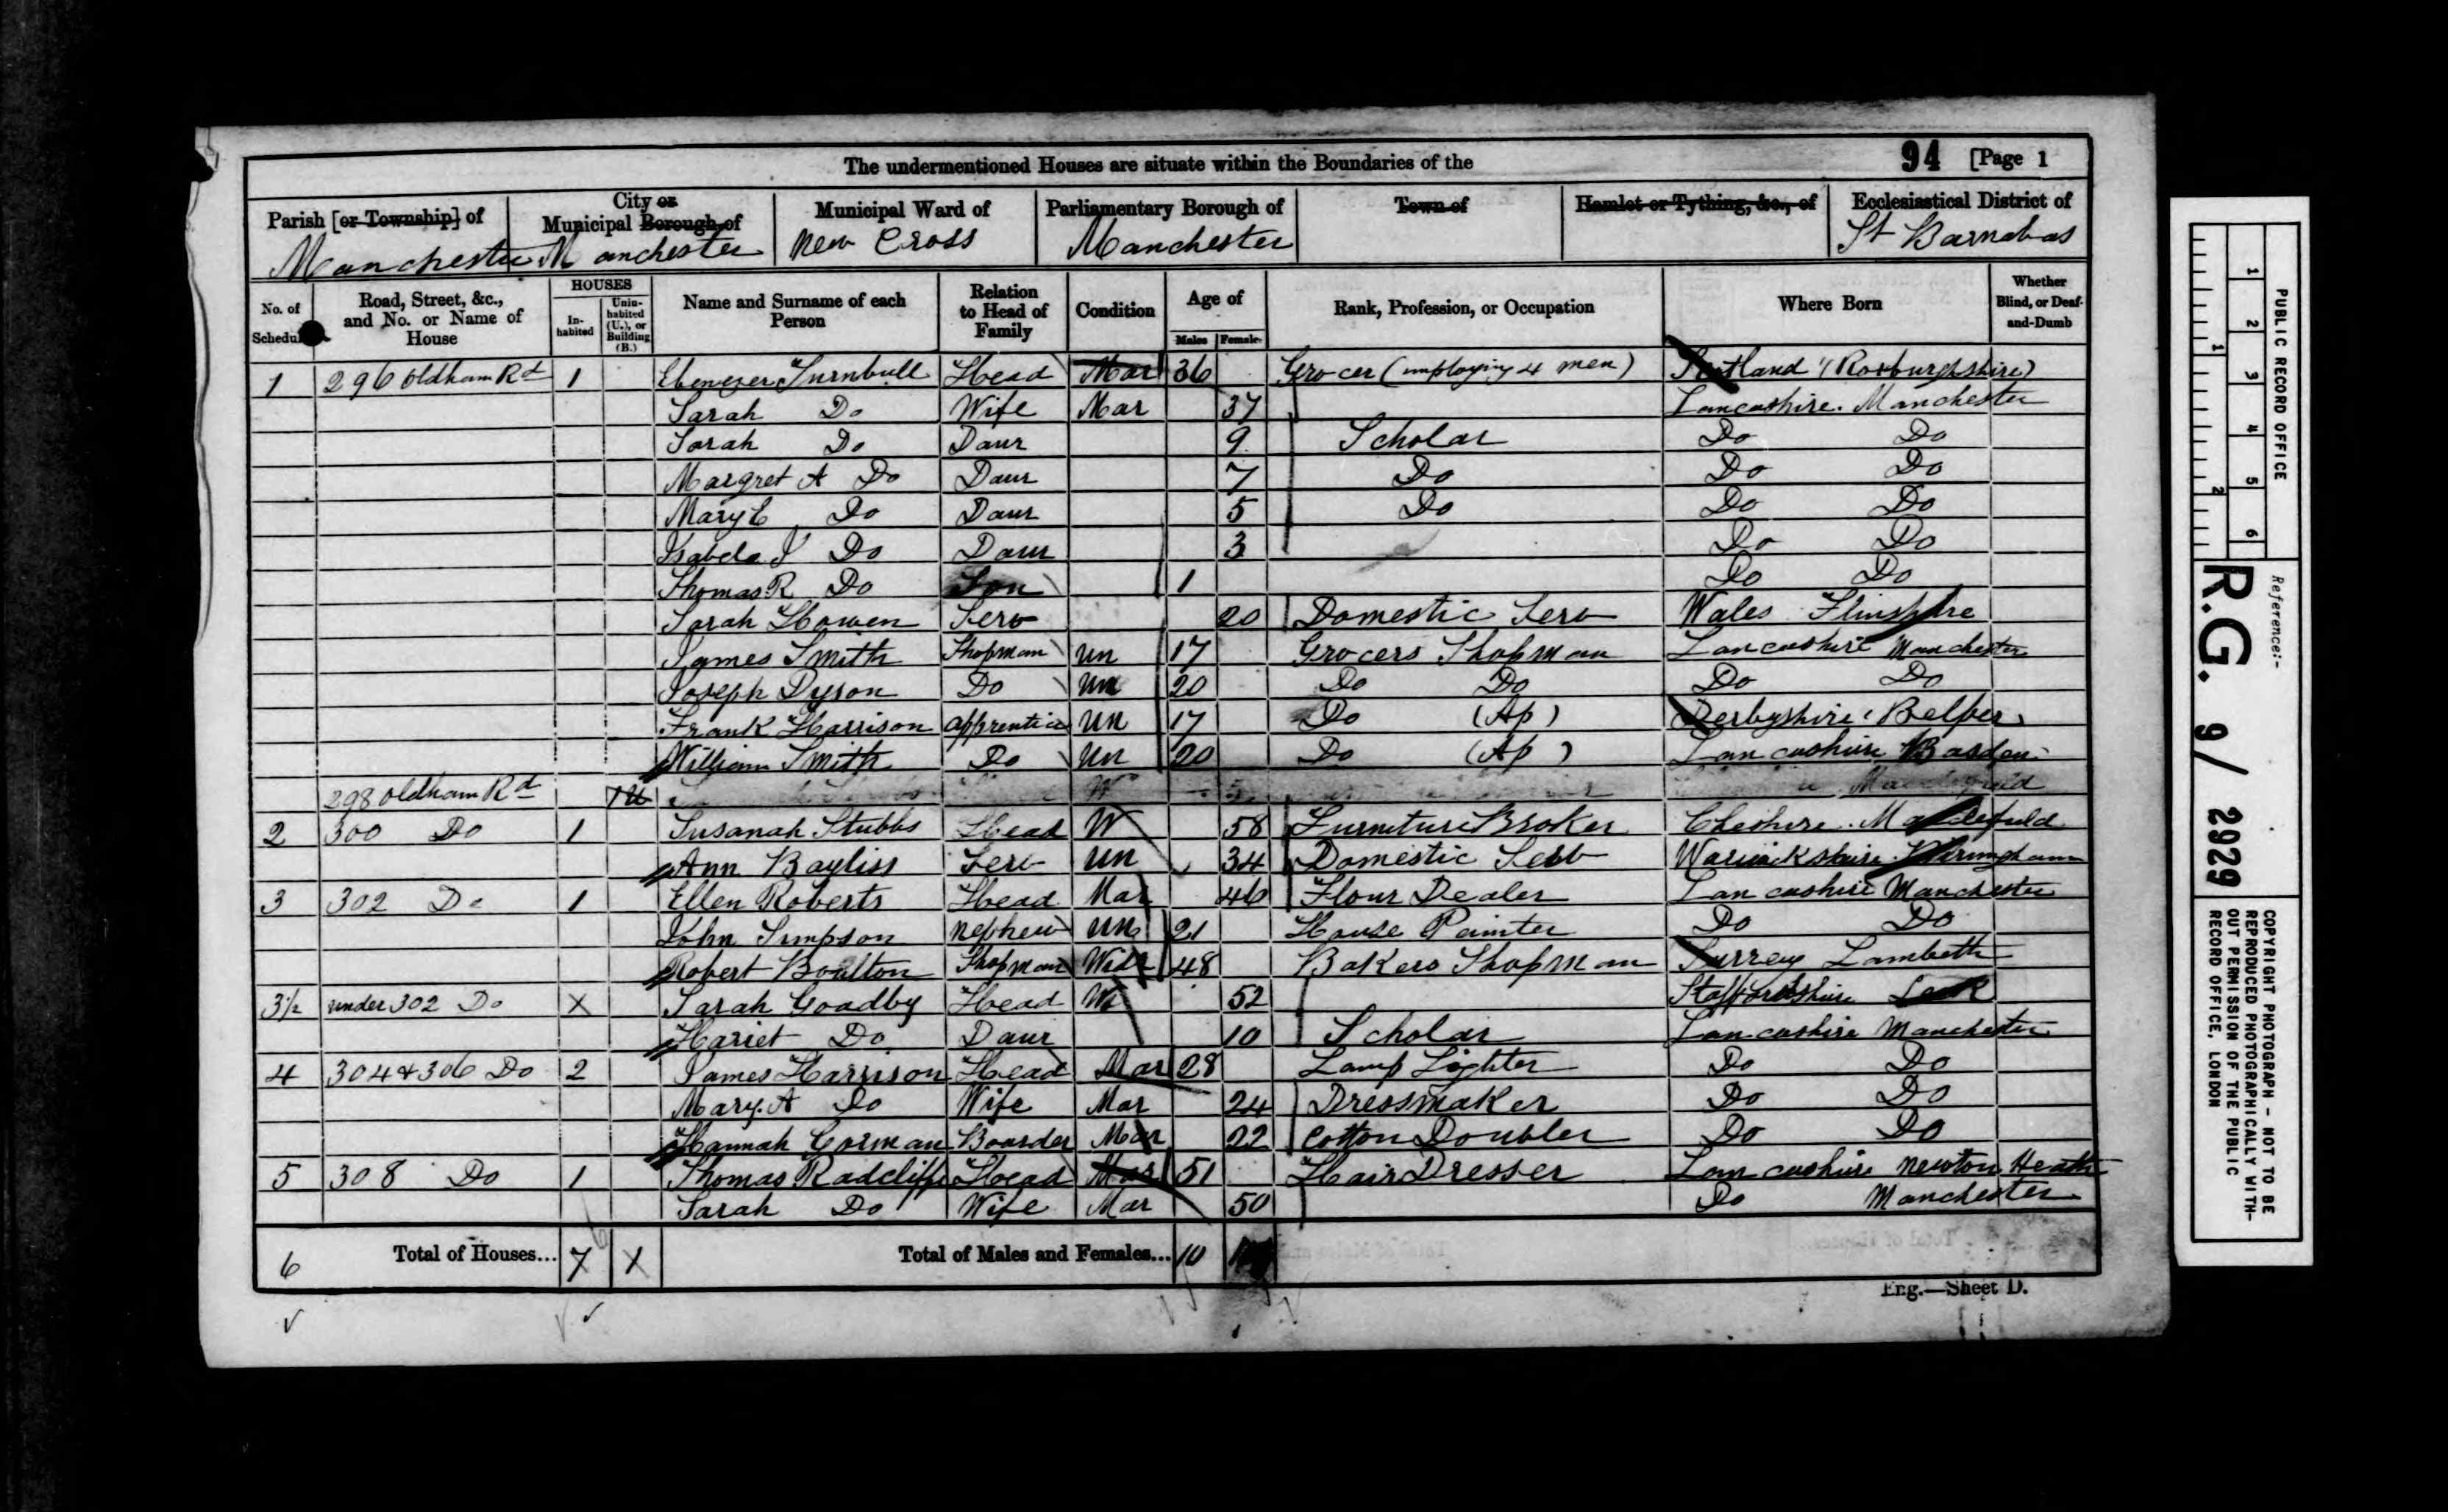 The undermentioned Houses are situate within the Boundaries of the 94 [Page 1
Parish [or Township] of Manchester
City or Municipal Borough of Manchester
Municipal Ward of New Cross
Parliamentary Borough of Manchester
Town of
Hamlet or Tything, &c., of
Ecclesiastical District of St Barnabas
No. of Schedule
Road, Street, &c., and No. or Name of House
HOUSES
Inhabited
Uninhabited (U.), or Building (B.)
Name and Surname of each Person
Relation to Head of Family
Condition
Age of
Males Females
Rank, Profession, or Occupation
Where Born
Whether Blind, or Deaf-and-Dumb
1 296 Oldham Rd 1 Ebenezer Turnbull Head Mar 36 Grocer (employing 4 men) Scotland (Roxburghshire)
Sarah Do Wife Mar 37 Lancashire. Manchester
Sarah Do Daur 9 Scholar Do Do
Margret A Do Daur 7 Do Do Do
Mary E Do Daur 5 Do Do Do
Isabela J Do Daur 3 Do Do
Thomas R Do Son 1 Do Do
Sarah Howen Serv 20 Domestic Serv Wales Flinshire
James Smith Shopman Un 17 Grocers Shopman Lancashire Manchester
Joseph Dyson Do Un 20 Do Do Do Do
Frank Harrison Apprentice Un 17 Do (Ap) Derbyshire Belper
William Smith Do Un 20 Do (Ap) Lancashire
298 Oldham Rd 1U
2 300 Do 1 Susanah Stubbs Head W 58 Furniture Broker Cheshire. Macclesfield
Ann Bayliss Serv Un 34 Domestic Serv Warwickshire. Birmingham
3 302 Do 1 Ellen Roberts Head Mar 46 Flour Dealer Lancashire Manchester
John Simpson Nephew Un 21 House Painter Do Do
Robert Boulton Shopman Widr 48 Bakers Shopman Surrey Lambeth
3½ under 302 Do X Sarah Goadby Head W 52 Staffordshire Leek
Hariet Do Daur 10 Scholar Lancashire Manchester
4 304 & 306 Do 2 James Harrison Head Mar 28 Lamp Lighter Do Do
Mary. A Do Wife Mar 24 Dressmaker Do Do
Hannah Gorman Boarder Mar 22 Cotton Doubler Do Do
5 308 Do 1 Thomas Radcliffe Head Mar 51 Hair Dresser Lancashire Newton Heath
Sarah Do Wife Mar 50 Do Manchester
6 Total of Houses... 7 X Total of Males and Females... 10
Eng.—Sheet D.
PUBLIC RECORD OFFICE
1 2 3 4 5 6
1 2
Reference:-
R.G. 9/ 2929
COPYRIGHT PHOTOGRAPH - NOT TO BE
REPRODUCED PHOTOGRAPHICALLY WITH-
OUT PERMISSION OF THE PUBLIC
RECORD OFFICE, LONDON